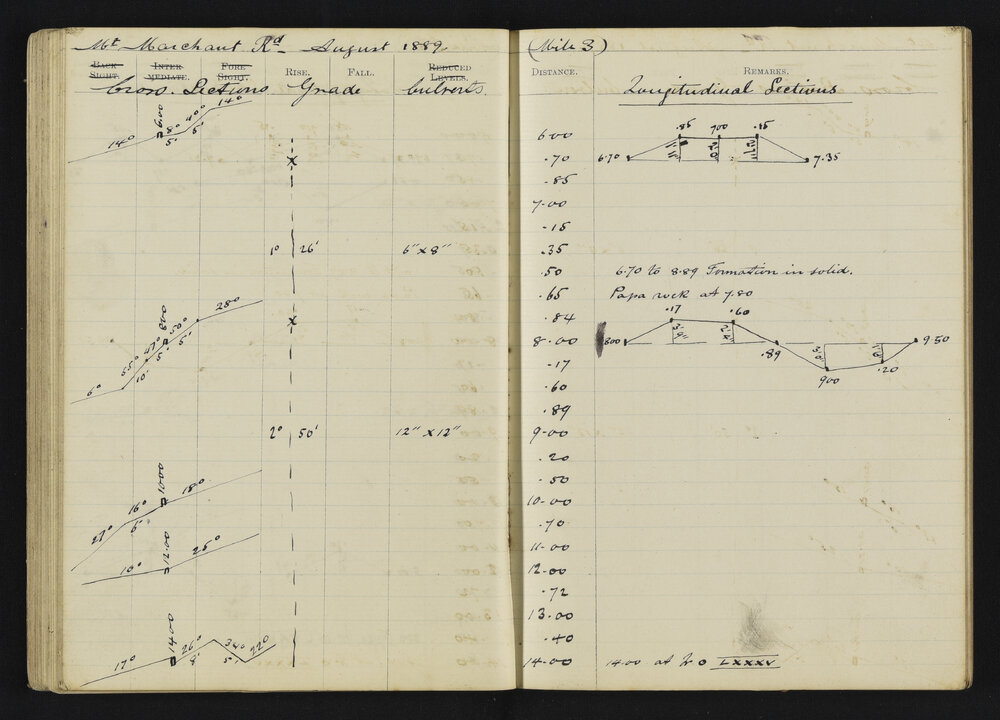 Mt Marchant Rd August 1889.
BACK SIGHT. INTER MEDIATE. FORE SIGHT. RISE. FALL. REDUCED LEVELS.
Cross. Sections Grade Culverts
14° 600 8° 40° 14°
5' 5'
1° 26' 6" x 8"
6° 55° 47° 800 50° 28°
10' 5' 5'
2° 50' 12" x 12"
27° 16° 1000 18°
6'
10° 12.00 25°
17° 1400 26° 34° 22°
8' 5'
(Mile 3)
DISTANCE. REMARKS.
Longitudinal Sections
6.00
.70
.85
7.00
.15
.35
.50
.65
.84
8.00
.17
.60
.89
9.00
.20
.50
10.00
.70
11.00
12.00
.72
13.00
.40
14.00
.85 700 .15
6.70 7.35
6.70 to 8.89 Formation in solid.
Papa rock at 7.80
.17 .60
800 .89 9.50
900 .20
14.00 at LXXXV